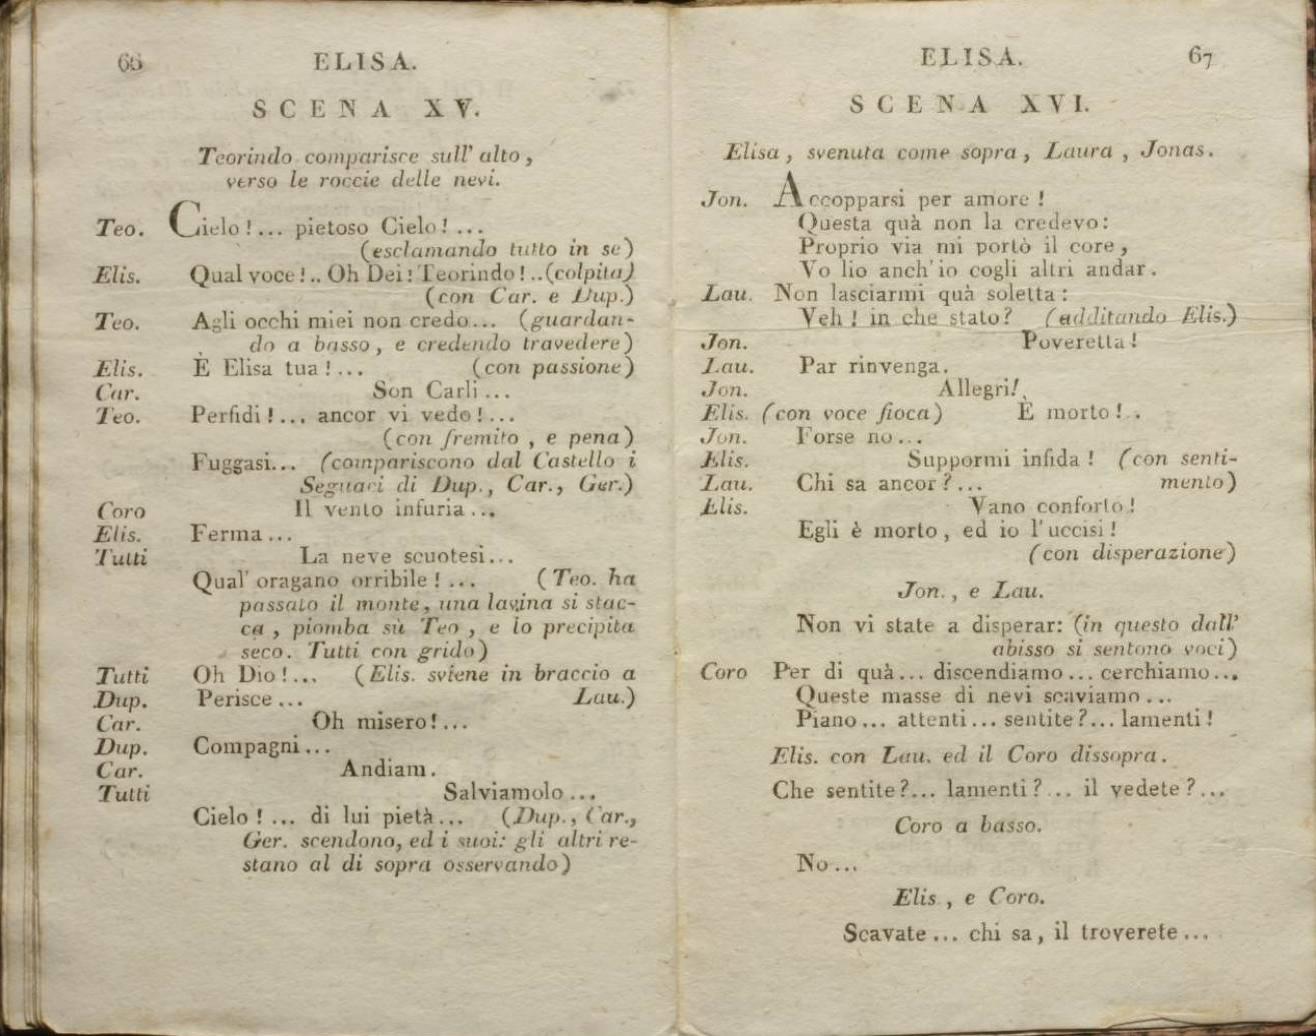 66
ELISA.
SCENA XV.
Teorindo comparisce sull' alto,
verso le roccie delle nevi.
Teo. Cielo!... pietoso Cielo!...
(esclamando tutto in se)
Elis. Qual voce!.. Oh Dei! Teorindo!..(colpita)
(con Car. e Dup.)
Teo. Agli occhi miei non credo... (guardan-
do a basso, e credendo travedere)
Elis. È Elisa tua!... (con passione)
Car. Son Carli...
Teo. Perfidi!... ancor vi vedo!...
(con fremito, e pena)
Fuggasi... (compariscono dal Castello i
Seguaci di Dup., Car., Ger.)
Coro Il vento infuria...
Elis. Ferma...
Tutti La neve scuotesi...
Qual' oragano orribile!... (Teo. ha
passato il monte, una lavina si stac-
ca, piomba sù Teo, e lo precipita
seco. Tutti con grido)
Tutti Oh Dio!... (Elis. sviene in braccio a
Dup. Perisce... Lau.)
Car. Oh misero!...
Dup. Compagni...
Car. Andiam.
Tutti Salviamolo...
Cielo!... di lui pietà... (Dup., Car.,
Ger. scendono, ed i suoi: gli altri re-
stano al di sopra osservando)
ELISA.
67
SCENA XVI.
Elisa, svenuta come sopra, Laura, Jonas.
Jon. Accopparsi per amore!
Questa quà non la credevo:
Proprio via mi portò il core,
Vo lio anch'io cogli altri andar.
Lau. Non lasciarmi quà soletta:
Veh! in che stato? (additando Elis.)
Jon. Poveretta!
Lau. Par rinvenga.
Jon. Allegri!
Elis. (con voce fioca) È morto!..
Jon. Forse no...
Elis. Suppormi infida! (con senti-
Lau. Chi sa ancor?... mento)
Elis. Vano conforto!
Egli è morto, ed io l'uccisi!
(con disperazione)
Jon., e Lau.
Non vi state a disperar: (in questo dall'
abisso si sentono voci)
Coro Per di quà... discendiamo... cerchiamo...
Queste masse di nevi scaviamo...
Piano... attenti... sentite?... lamenti!
Elis. con Lau. ed il Coro dissopra.
Che sentite?... lamenti?... il vedete?...
Coro a basso.
No...
Elis., e Coro.
Scavate... chi sa, il troverete...